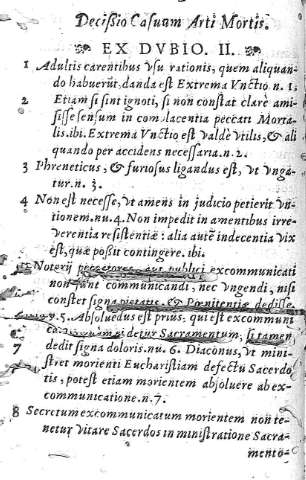 Decissio Casuum Arti Mortis.
EX DVBIO. II.
1 Adultis carentibus vsu rationis, quem aliquan-
do habuerūt, danda est Extrema Vnctio n. 1.
2 Etiam si sint ignoti, si non constat clarè ami-
sisse sensum in complacentia peccati Morta-
lis. ibi. Extrema Vnctio est valdè vtilis, & ali
quando per accidens necessaria. n. 2.
3 Phreneticus, & furiosus ligandus est, vt vnga-
tur. n. 3.
4 Non est necesse, vt amens in judicio petierit vn-
tionem. nu. 4. Non impedit in amentibus irre-
verentia resistentiæ: alia autē indecentia vix
est, quæ possit contingere. ibi.
Noterij peccatores, aut publici excommunicati
non sunt communicandi, nec vngendi, nisi
constet signa pietatis & Pœnitentiæ dedisse.
5. Absoluedus est prius, qui est excommuni
Sacramentum, si tamen
7 dedit signa doloris. nu. 6. Diaconus, vt mini-
stret morienti Eucharistiam defectu Sacerdo
tis, potest etiam morientem absoluere ab ex-
communicatione. n. 7.
8 Secretum excommunicatum morientem non te-
netur vitare Sacerdos in ministratione Sacra-
mento-